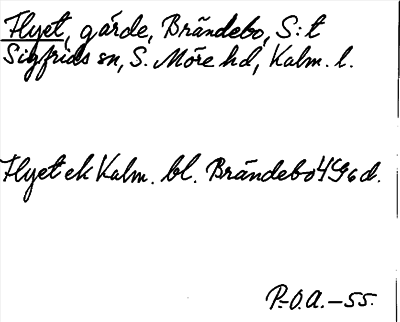 Flyet, gärde, Brändebo, S:t
Sigfrids sn, S. Möre hd, Kalm. l.
Flyet ek Kalm. bl. Brändebo 4G6d.
P.-O.A.-55.